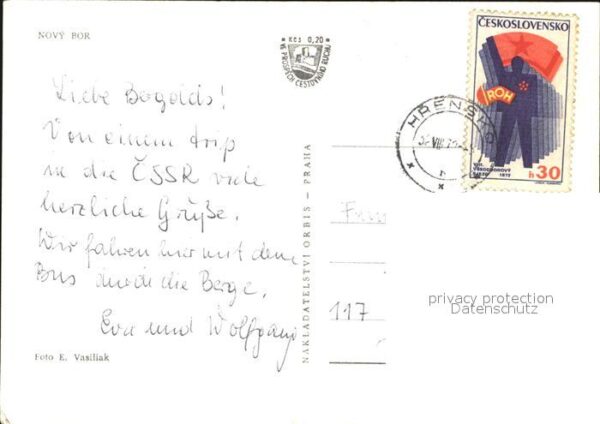 NOVÝ BOR
Kčs 0,20
VE PROSPĚCH CESTOVNÍHO RUCHU
ČESKOSLOVENSKO
ROH
1972
h 30
HŘENSKO
Liebe Bogolds!
Von einem trip
in die ČSSR viele
herzliche Grüße.
Wir fahren hier mit dem
Bus durch die Berge.
Eva und Wolfgang
Foto E. Vasiliak
NAKLADATELSTVÍ ORBIS — PRAHA
117
privacy protection
Datenschutz